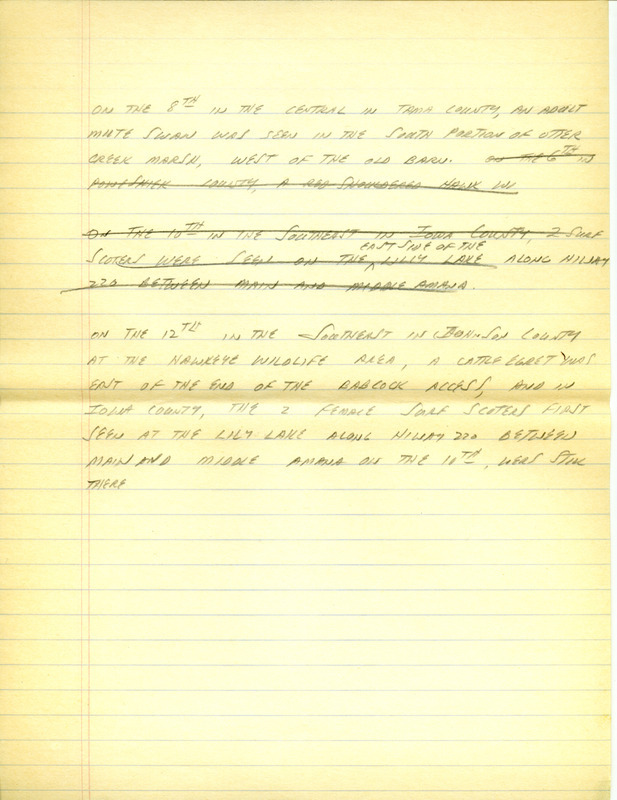 ON THE 8TH IN THE CENTRAL IN TAMA COUNTY, AN ADULT
MUTE SWAN WAS SEEN IN THE SOUTH PORTION OF OTTER
CREEK MARSH, WEST OF THE OLD BARN. ON THE 6TH IN
POWESHIEK COUNTY, A RED SHOULDERED HAWK IN
ON THE 10TH IN THE SOUTHEAST IN IOWA COUNTY, 2 SURF
EAST SIDE OF THE
SCOTERS WERE SEEN ON THE LILLY LAKE ALONG HIWAY
220 BETWEEN MAIN AND MIDDLE AMANA.
ON THE 12TH IN THE SOUTHEAST IN JOHNSON COUNTY
AT THE HAWKEYE WILDLIFE AREA, A CATTLE EGRET WAS
EAST OF THE END OF THE BABCOCK ACCESS, AND IN
IOWA COUNTY, THE 2 FEMALE SURF SCOTERS FIRST
SEEN AT THE LILY LAKE ALONG HIWAY 220 BETWEEN
MAIN AND MIDDLE AMANA ON THE 10TH, WERE STILL
THERE